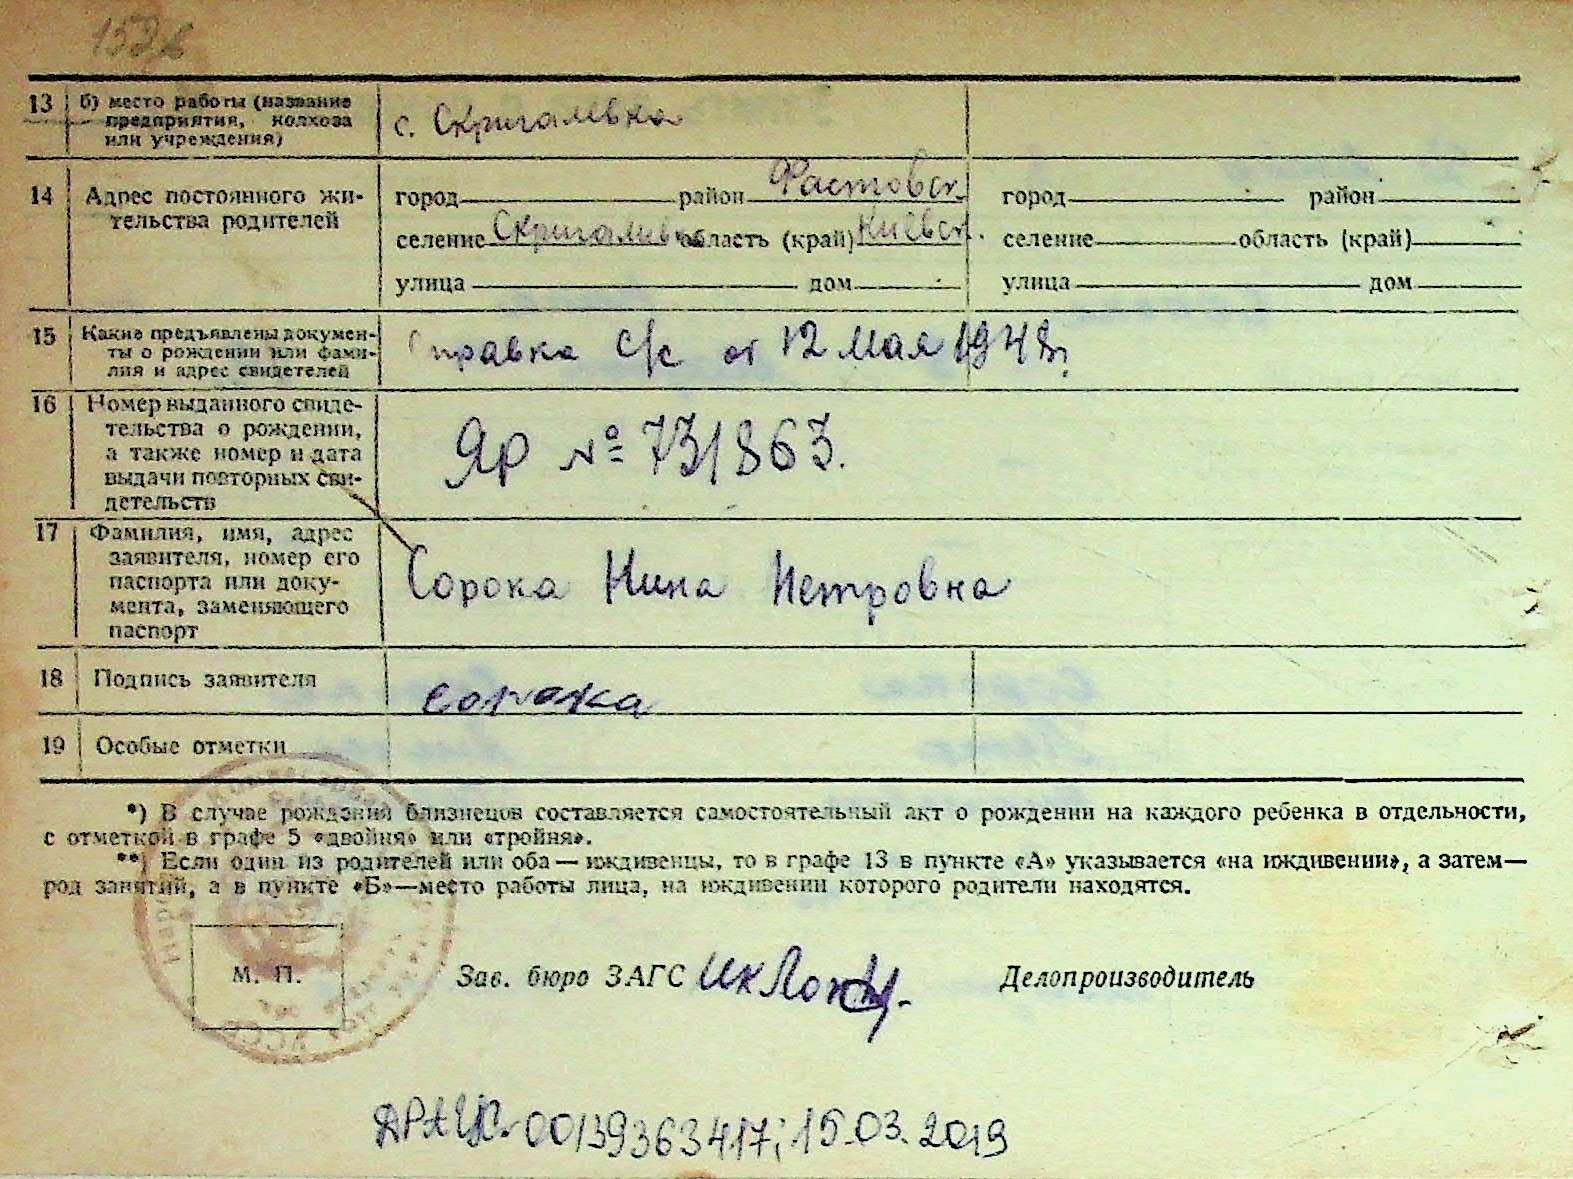 13 б) место работы (название
предприятия, колхоза
или учреждения)
с. Скригалевка
14 Адрес постоянного жи-
тельства родителей
город район Фастовск город район
селение Скригалевка область (край) Киевск. селение область (край)
улица дом улица дом
15 Какие предъявлены докумен-
ты о рождении или фами-
лия и адрес свидетелей
Справка с/с от 12 мая 1948 г.
16 Номер выданного свиде-
тельства о рождении,
а также номер и дата
выдачи повторных сви-
детельств
ЯР №
17 Фамилия, имя, адрес
заявителя, номер его
паспорта или доку-
мента, заменяющего
паспорт
Сорока Нина Петровна
18 Подпись заявителя
Сорока
19 Особые отметки
*) В случае рождений близнецов составляется самостоятельный акт о рождении на каждого ребенка в отдельности,
с отметкой в графе 5 «двойня» или «тройня».
**) Если один из родителей или оба — иждивенцы, то в графе 13 в пункте «А» указывается «на иждивении», а затем—
род занятий, а в пункте «Б»—место работы лица, на иждивении которого родители находятся.
М. П. Зав. бюро ЗАГС Делопроизводитель
ДРАЦС. 00139363417; 15.03.2019